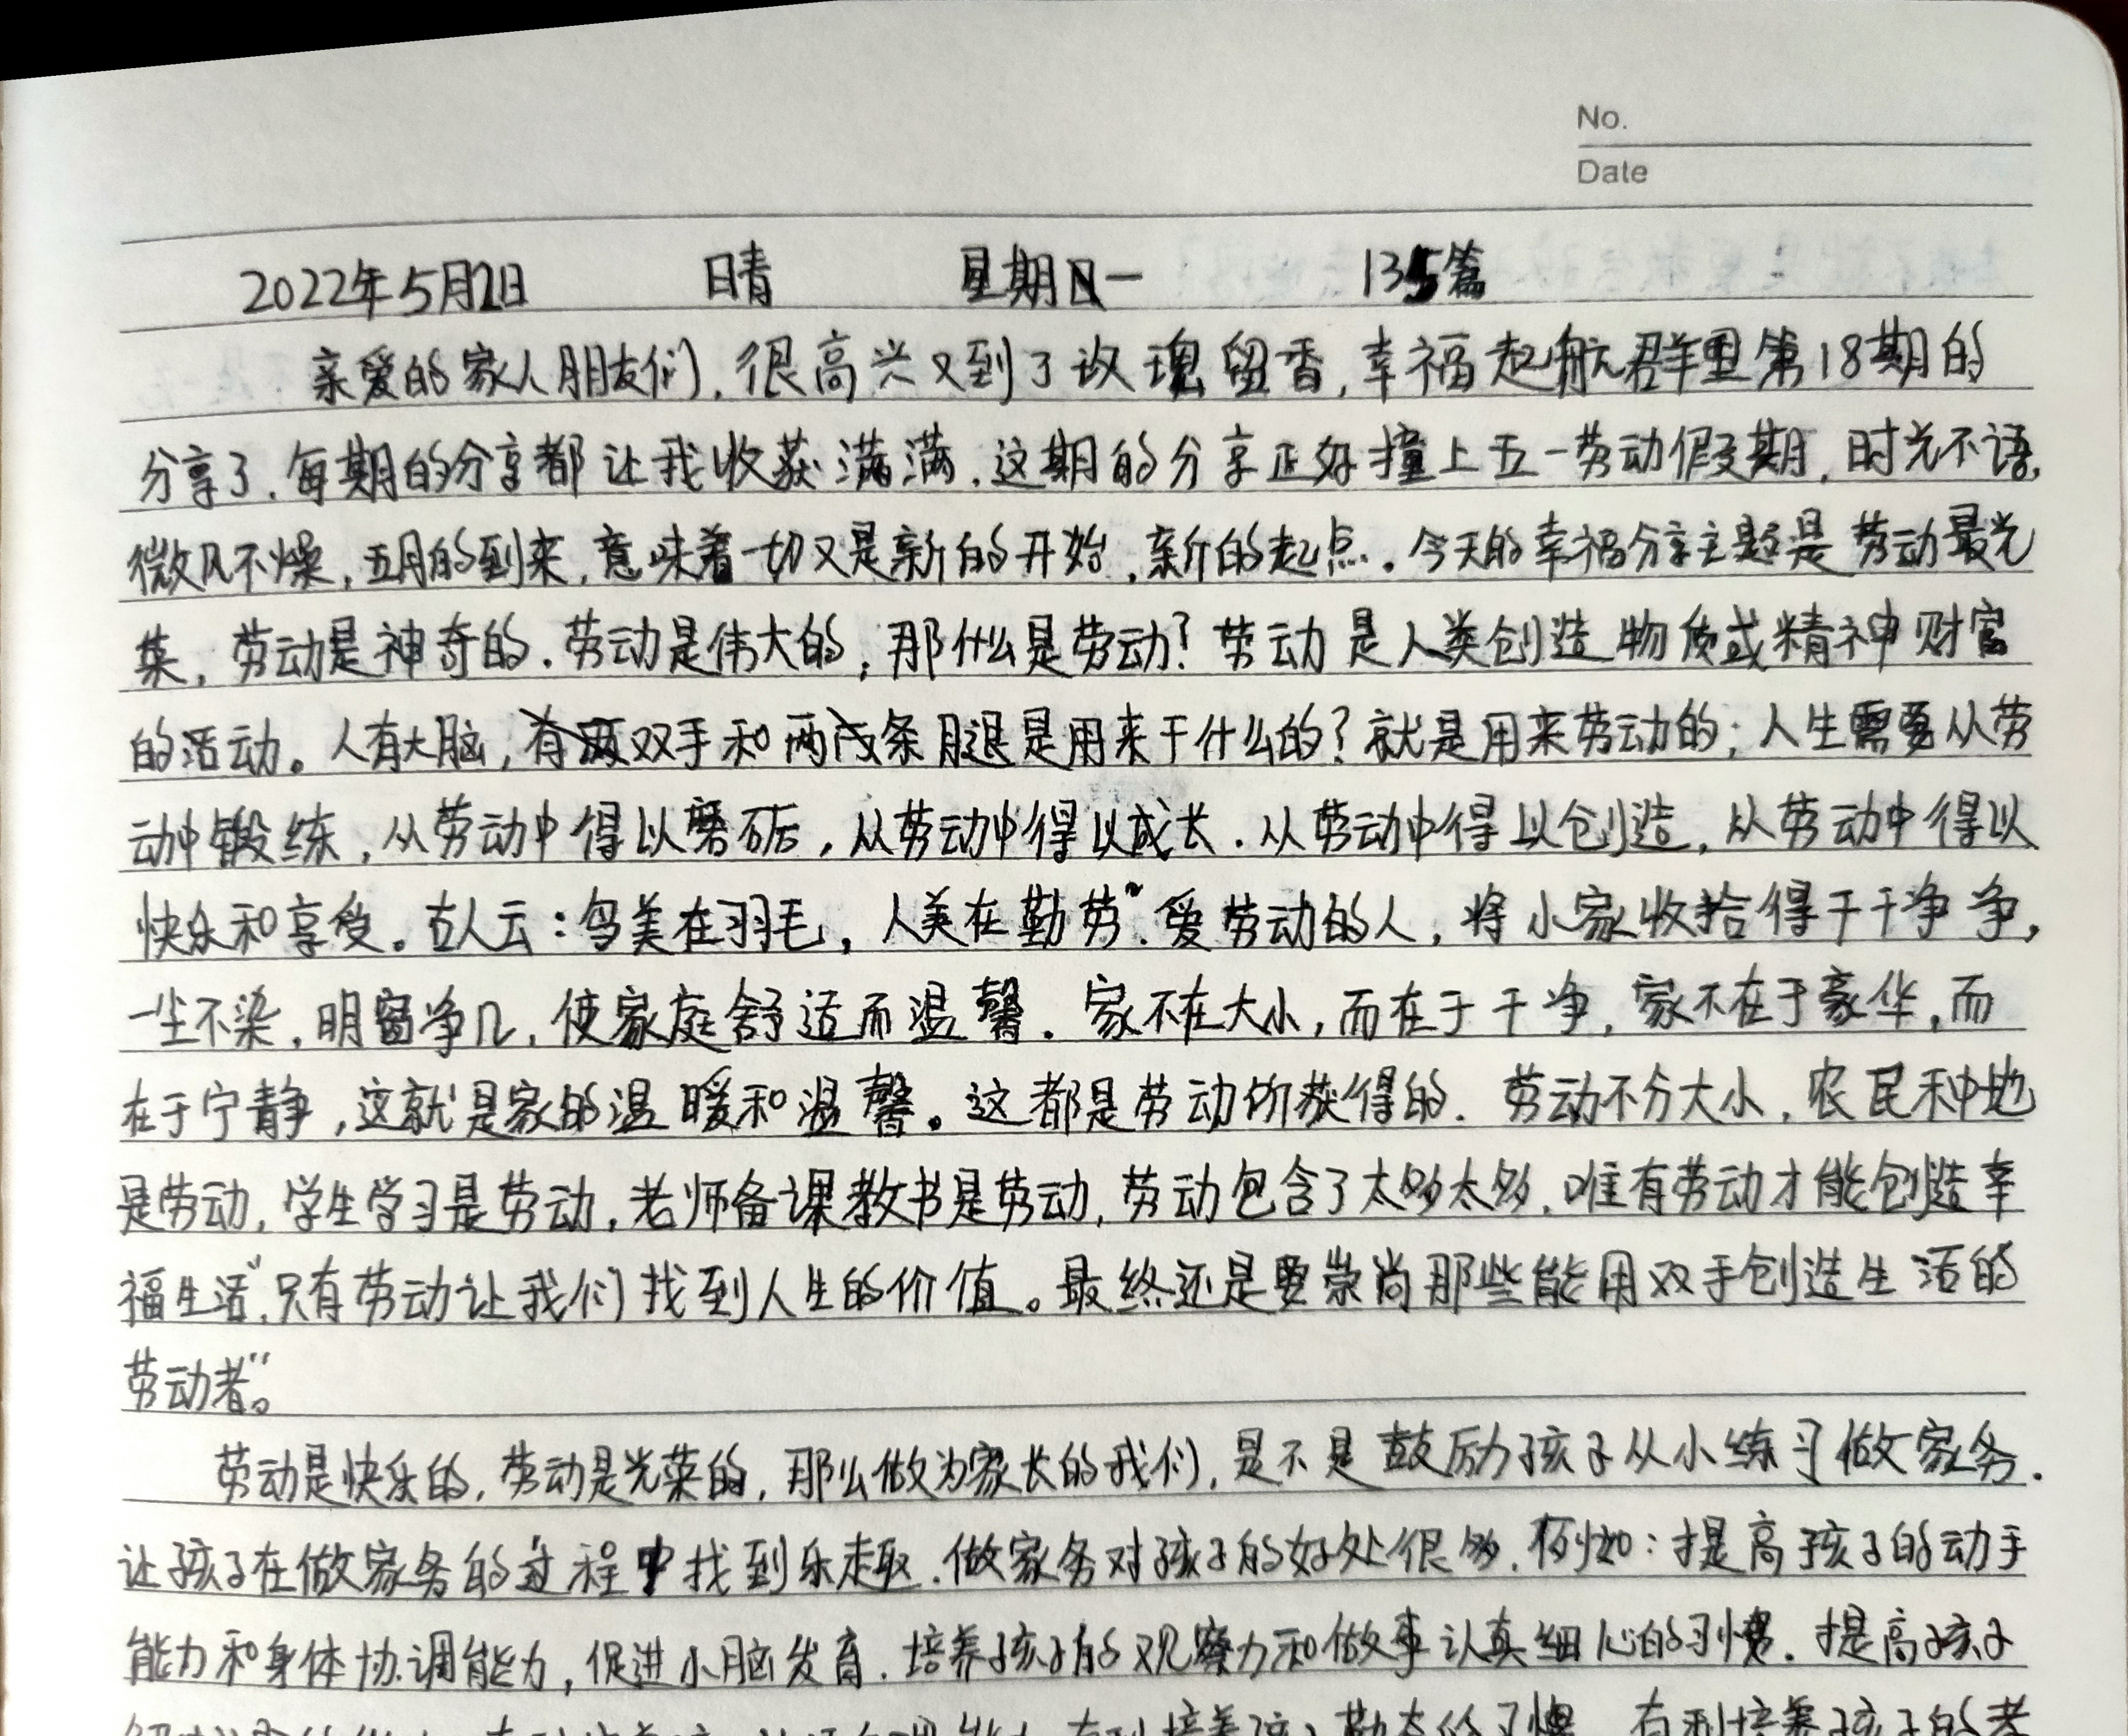 No.
Date
2022年5月2日 晴 星期一 135篇
亲爱的家人朋友们，很高兴又到了玫瑰留香，幸福起航群里第18期的
分享了．每期的分享都让我收获满满，这期的分享正好撞上五一劳动假期，时光不语，
微风不燥，五月的到来，意味着一切又是新的开始，新的起点。今天的幸福分享主题是劳动最光
荣，劳动是神奇的．劳动是伟大的，那什么是劳动？劳动是人类创造物质或精神财富
的活动。人有大脑，双手和两条腿是用来干什么的？就是用来劳动的；人生需要从劳
动中锻练，从劳动中得以磨砺，从劳动中得以成长．从劳动中得以创造，从劳动中得以
快乐和享受。古人云：鸟美在羽毛，人美在勤劳”．爱劳动的人，将小家收拾得干干净净，
一尘不染，明窗净几，使家庭舒适而温馨．家不在大小，而在于干净，家不在于豪华，而
在于宁静，这就是家的温暖和温馨。这都是劳动所获得的．劳动不分大小，农民种地
是劳动，学生学习是劳动，老师备课教书是劳动，劳动包含了太多太多，唯有劳动才能创造幸
福生活”，只有劳动让我们找到人生的价值。最终还是要崇尚那些能用双手创造生活的
劳动者”。
劳动是快乐的，劳动是光荣的，那么做为家长的我们，是不是鼓励孩子从小练习做家务．
让孩子在做家务的过程中找到乐趣．做家务对孩子的好处很多，例如：提高孩子的动手
能力和身体协调能力，促进小脑发育．培养孩子的观察力和做事认真细心的习惯．提高孩子